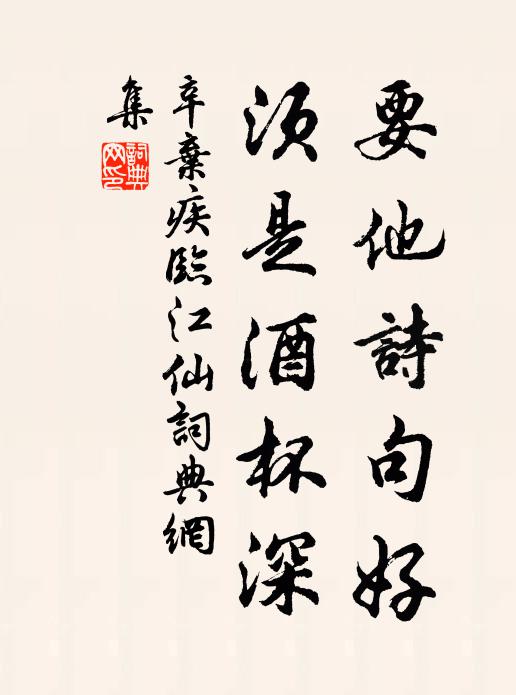 要他詩句好
須是酒杯深
辛棄疾臨江仙詞典網
集
詞典網印